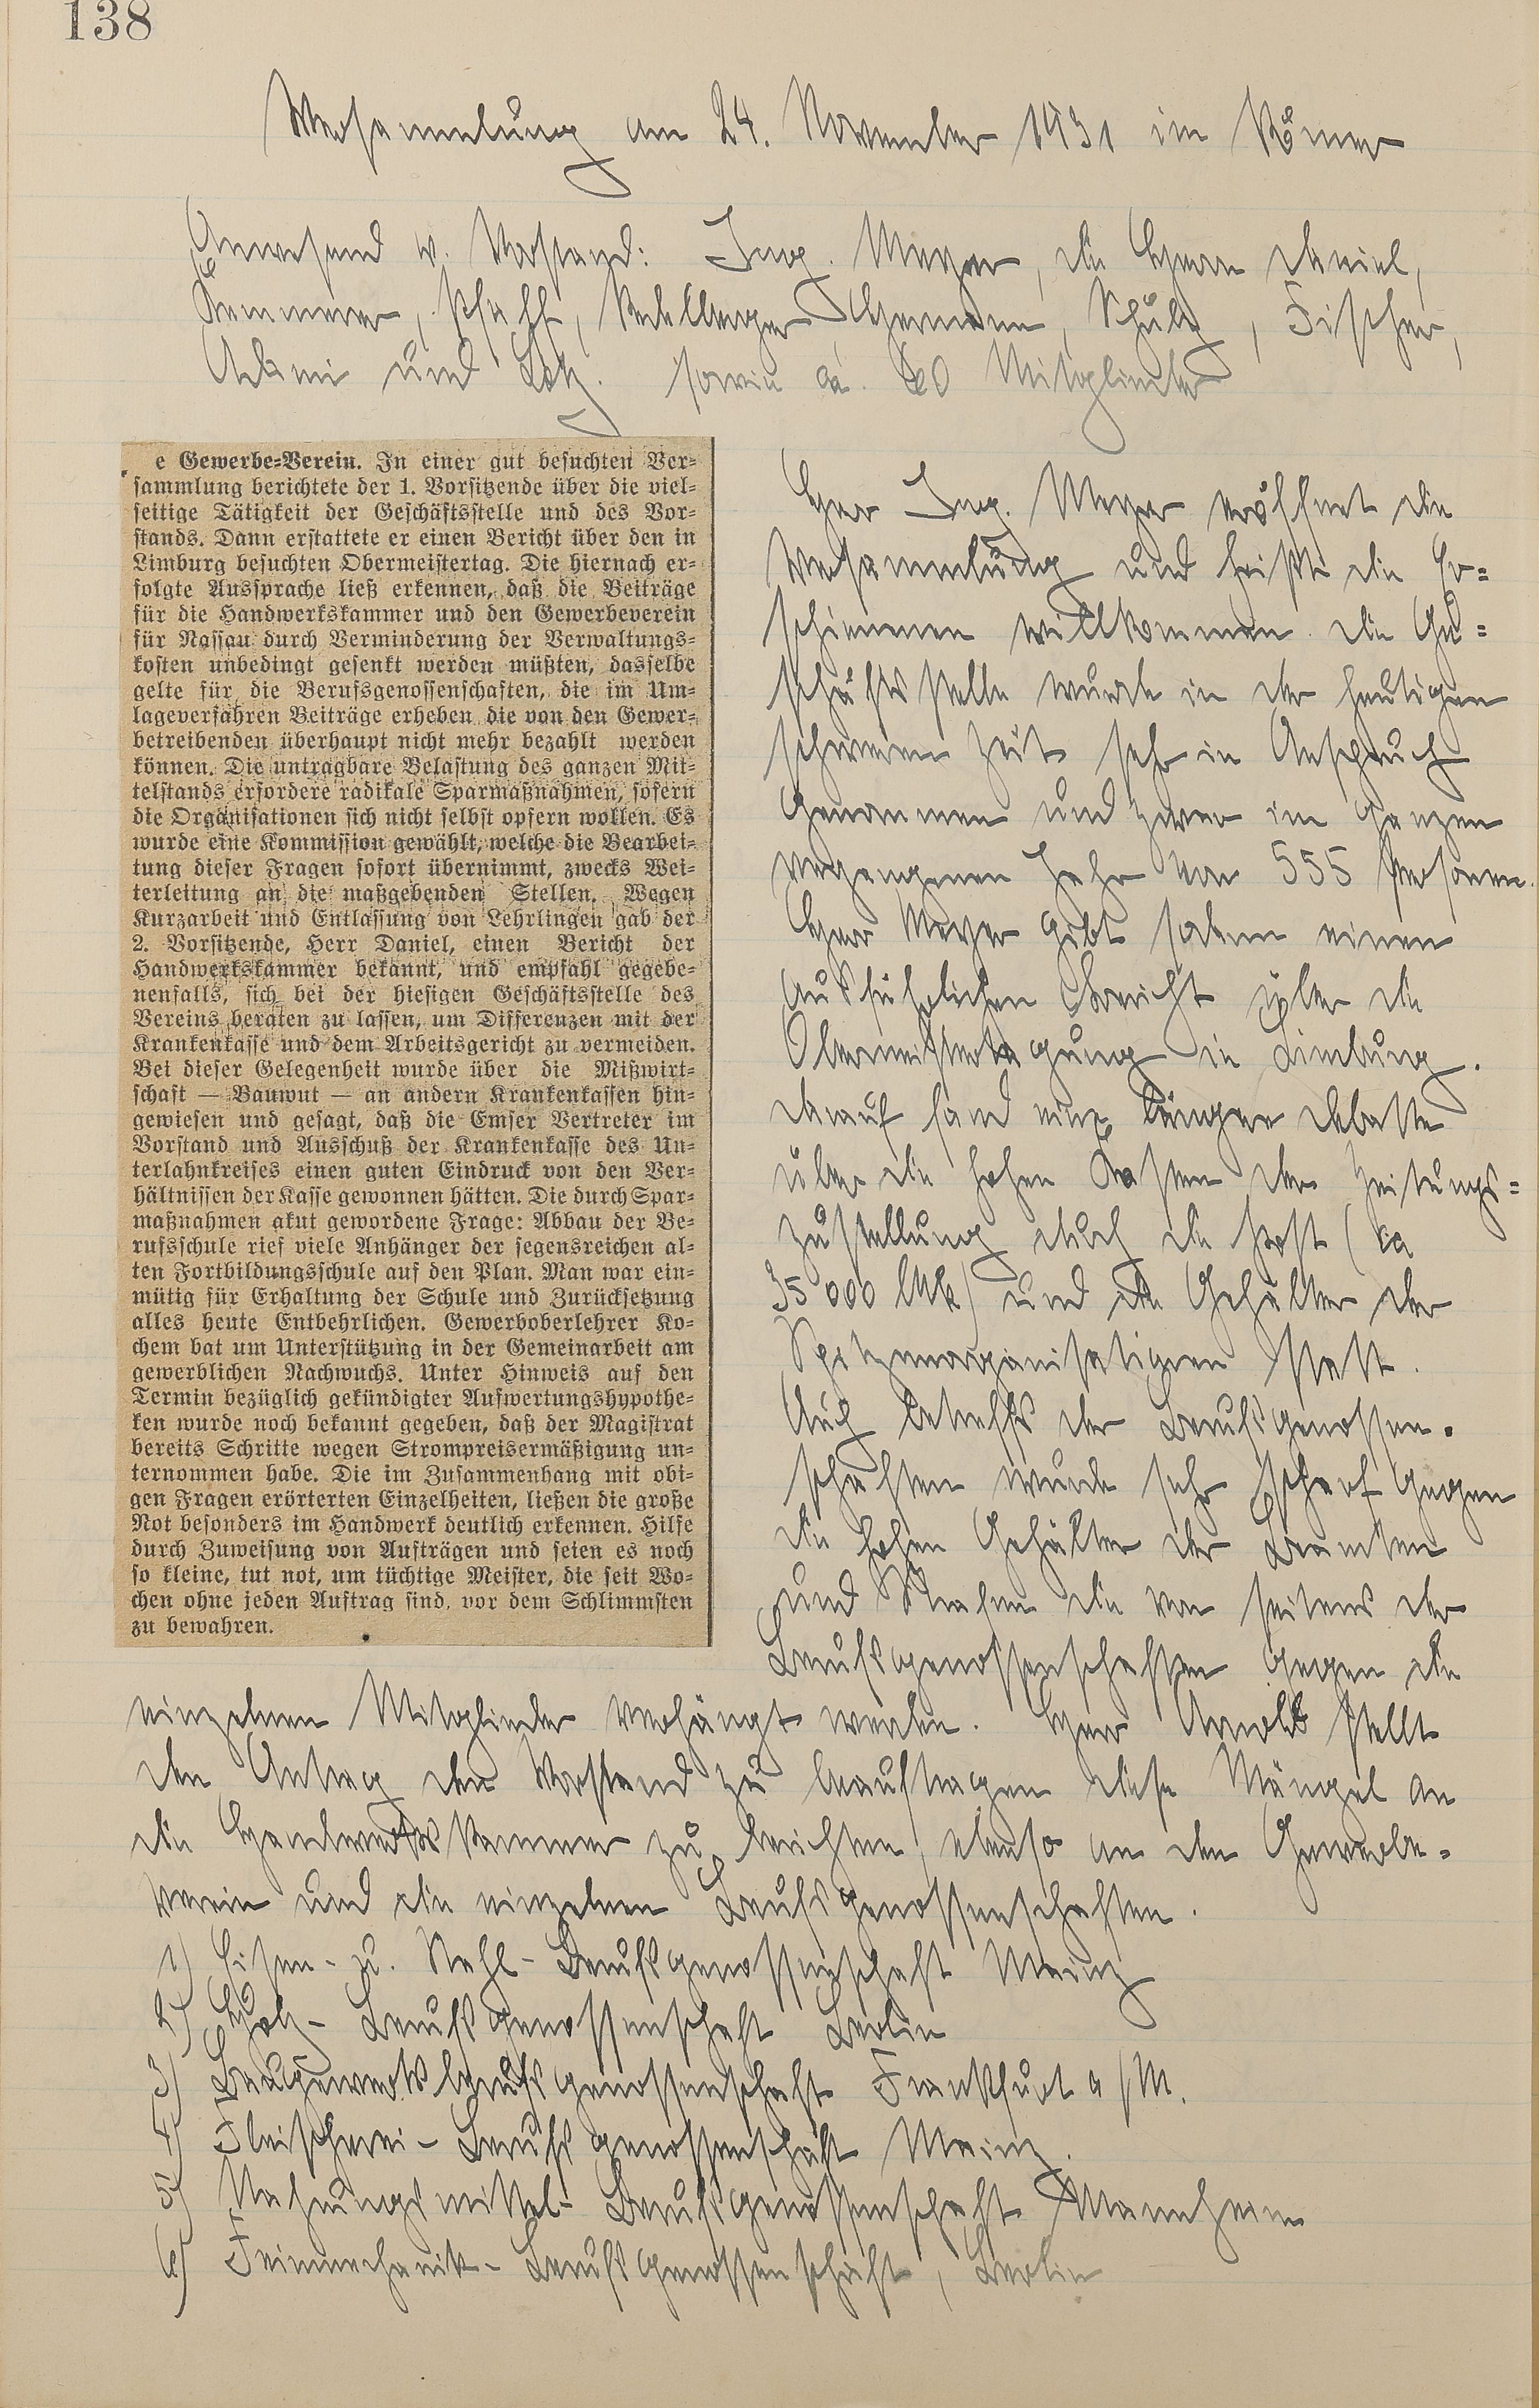 138
Versammlung am 24. November 1931 im Römer
Anwesend v. Vorstand: Ing. Meyer, die Herrn Daniel,
Kemmerer, Pfaff, Hermann, Schulz, Fischer,
Adami und Lotz. sowie ca. Mitglieder
e Gewerbe-Verein. In einer gut besuchten Ver-
sammlung berichtete der 1. Vorsitzende über die viel-
seitige Tätigkeit der Geschäftsstelle und des Vor-
stands. Dann erstattete er einen Bericht über den in
Limburg besuchten Obermeistertag. Die hiernach er-
folgte Aussprache ließ erkennen, daß die Beiträge
für die Handwerkskammer und den Gewerbeverein
für Nassau durch Verminderung der Verwaltungs-
kosten unbedingt gesenkt werden müßten, dasselbe
gelte für die Berufsgenossenschaften, die im Um-
lageverfahren Beiträge erheben, die von den Gewer-
betreibenden überhaupt nicht mehr bezahlt werden
können. Die untragbare Belastung des ganzen Mit-
telstands erfordere radikale Sparmaßnahmen, sofern
die Organisationen sich nicht selbst opfern wollen. Es
wurde eine Kommission gewählt, welche die Bearbei-
tung dieser Fragen sofort übernimmt, zwecks Wei-
terleitung an die maßgebenden Stellen. Wegen
Kurzarbeit und Entlassung von Lehrlingen gab der
2. Vorsitzende, Herr Daniel, einen Bericht der
Handwerkskammer bekannt, und empfahl gegebe-
nenfalls, sich bei der hiesigen Geschäftsstelle des
Vereins beraten zu lassen, um Differenzen mit der
Krankenkasse und dem Arbeitsgericht zu vermeiden.
Bei dieser Gelegenheit wurde über die Mißwirt-
schaft — Bauwut — an andern Krankenkassen hin-
gewiesen und gesagt, daß die Emser Vertreter im
Vorstand und Ausschuß der Krankenkasse des Un-
terlahnkreises einen guten Eindruck von den Ver-
hältnissen der Kasse gewonnen hätten. Die durch Spar-
maßnahmen akut gewordene Frage: Abbau der Be-
rufsschule rief viele Anhänger der segensreichen al-
ten Fortbildungsschule auf den Plan. Man war ein-
mütig für Erhaltung der Schule und Zurücksetzung
alles heute Entbehrlichen. Gewerboberlehrer Ko-
chem bat um Unterstützung in der Gemeinarbeit am
gewerblichen Nachwuchs. Unter Hinweis auf den
Termin bezüglich gekündigter Aufwertungshypothe-
ken wurde noch bekannt gegeben, daß der Magistrat
bereits Schritte wegen Strompreisermäßigung un-
ternommen habe. Die im Zusammenhang mit obi-
gen Fragen erörterten Einzelheiten, ließen die große
Not besonders im Handwerk deutlich erkennen. Hilfe
durch Zuweisung von Aufträgen und seien es noch
so kleine, tut not, um tüchtige Meister, die seit Wo-
chen ohne jeden Auftrag sind, vor dem Schlimmsten
zu bewahren.
Herr Ing. Meyer eröffnet die
Versammlung und heißt die Er=
schienenen willkommen. Die Ge=
schäftsstelle wurde in der heutigen
schweren Zeit sehr in Anspruch
genommen und zwar im ganzen
vergangenen Jahr von 555 Personen.
Herr Meyer gibt sodann einen
ausführlichen Bericht über die
Obermeistertagung in Limburg.
Darauf fand eine längere Debatte
über die hohen Kosten der Zeitungs=
zustellung durch die Post (ca
35000 Mk) und die Gehälter der
Spitzenorganisationen statt.
Auch betreffs der Berufsgenossen-
schaften wurde sehr scharf gegen
die hohen Gehälter der Beamten
und Strafen die von seitens der
Berufsgenossenschaften gegen die
einzelnen Mitglieder verhängt werden. Herr Arnold stellt
den Antrag den Vorstand zu beauftragen diese Mängel an
die Handwerkskammer zu berichten, ebenso an den Gewerbe=
verein und die einzelnen Berufsgenossenschaften.
1) Eisen- u. Stahl-Berufsgenossenschaft Mainz
2) Holz-Berufsgenossenschaft Berlin
3) Baugewerksberufsgenossenschaft Frankfurt a/M.
4) Fleischerei-Berufsgenossenschaft Mainz.
5) Nahrungsmittel-Berufsgenossenschaft Mannheim
6) Feinmechanik-Berufsgenossenschaft, Berlin